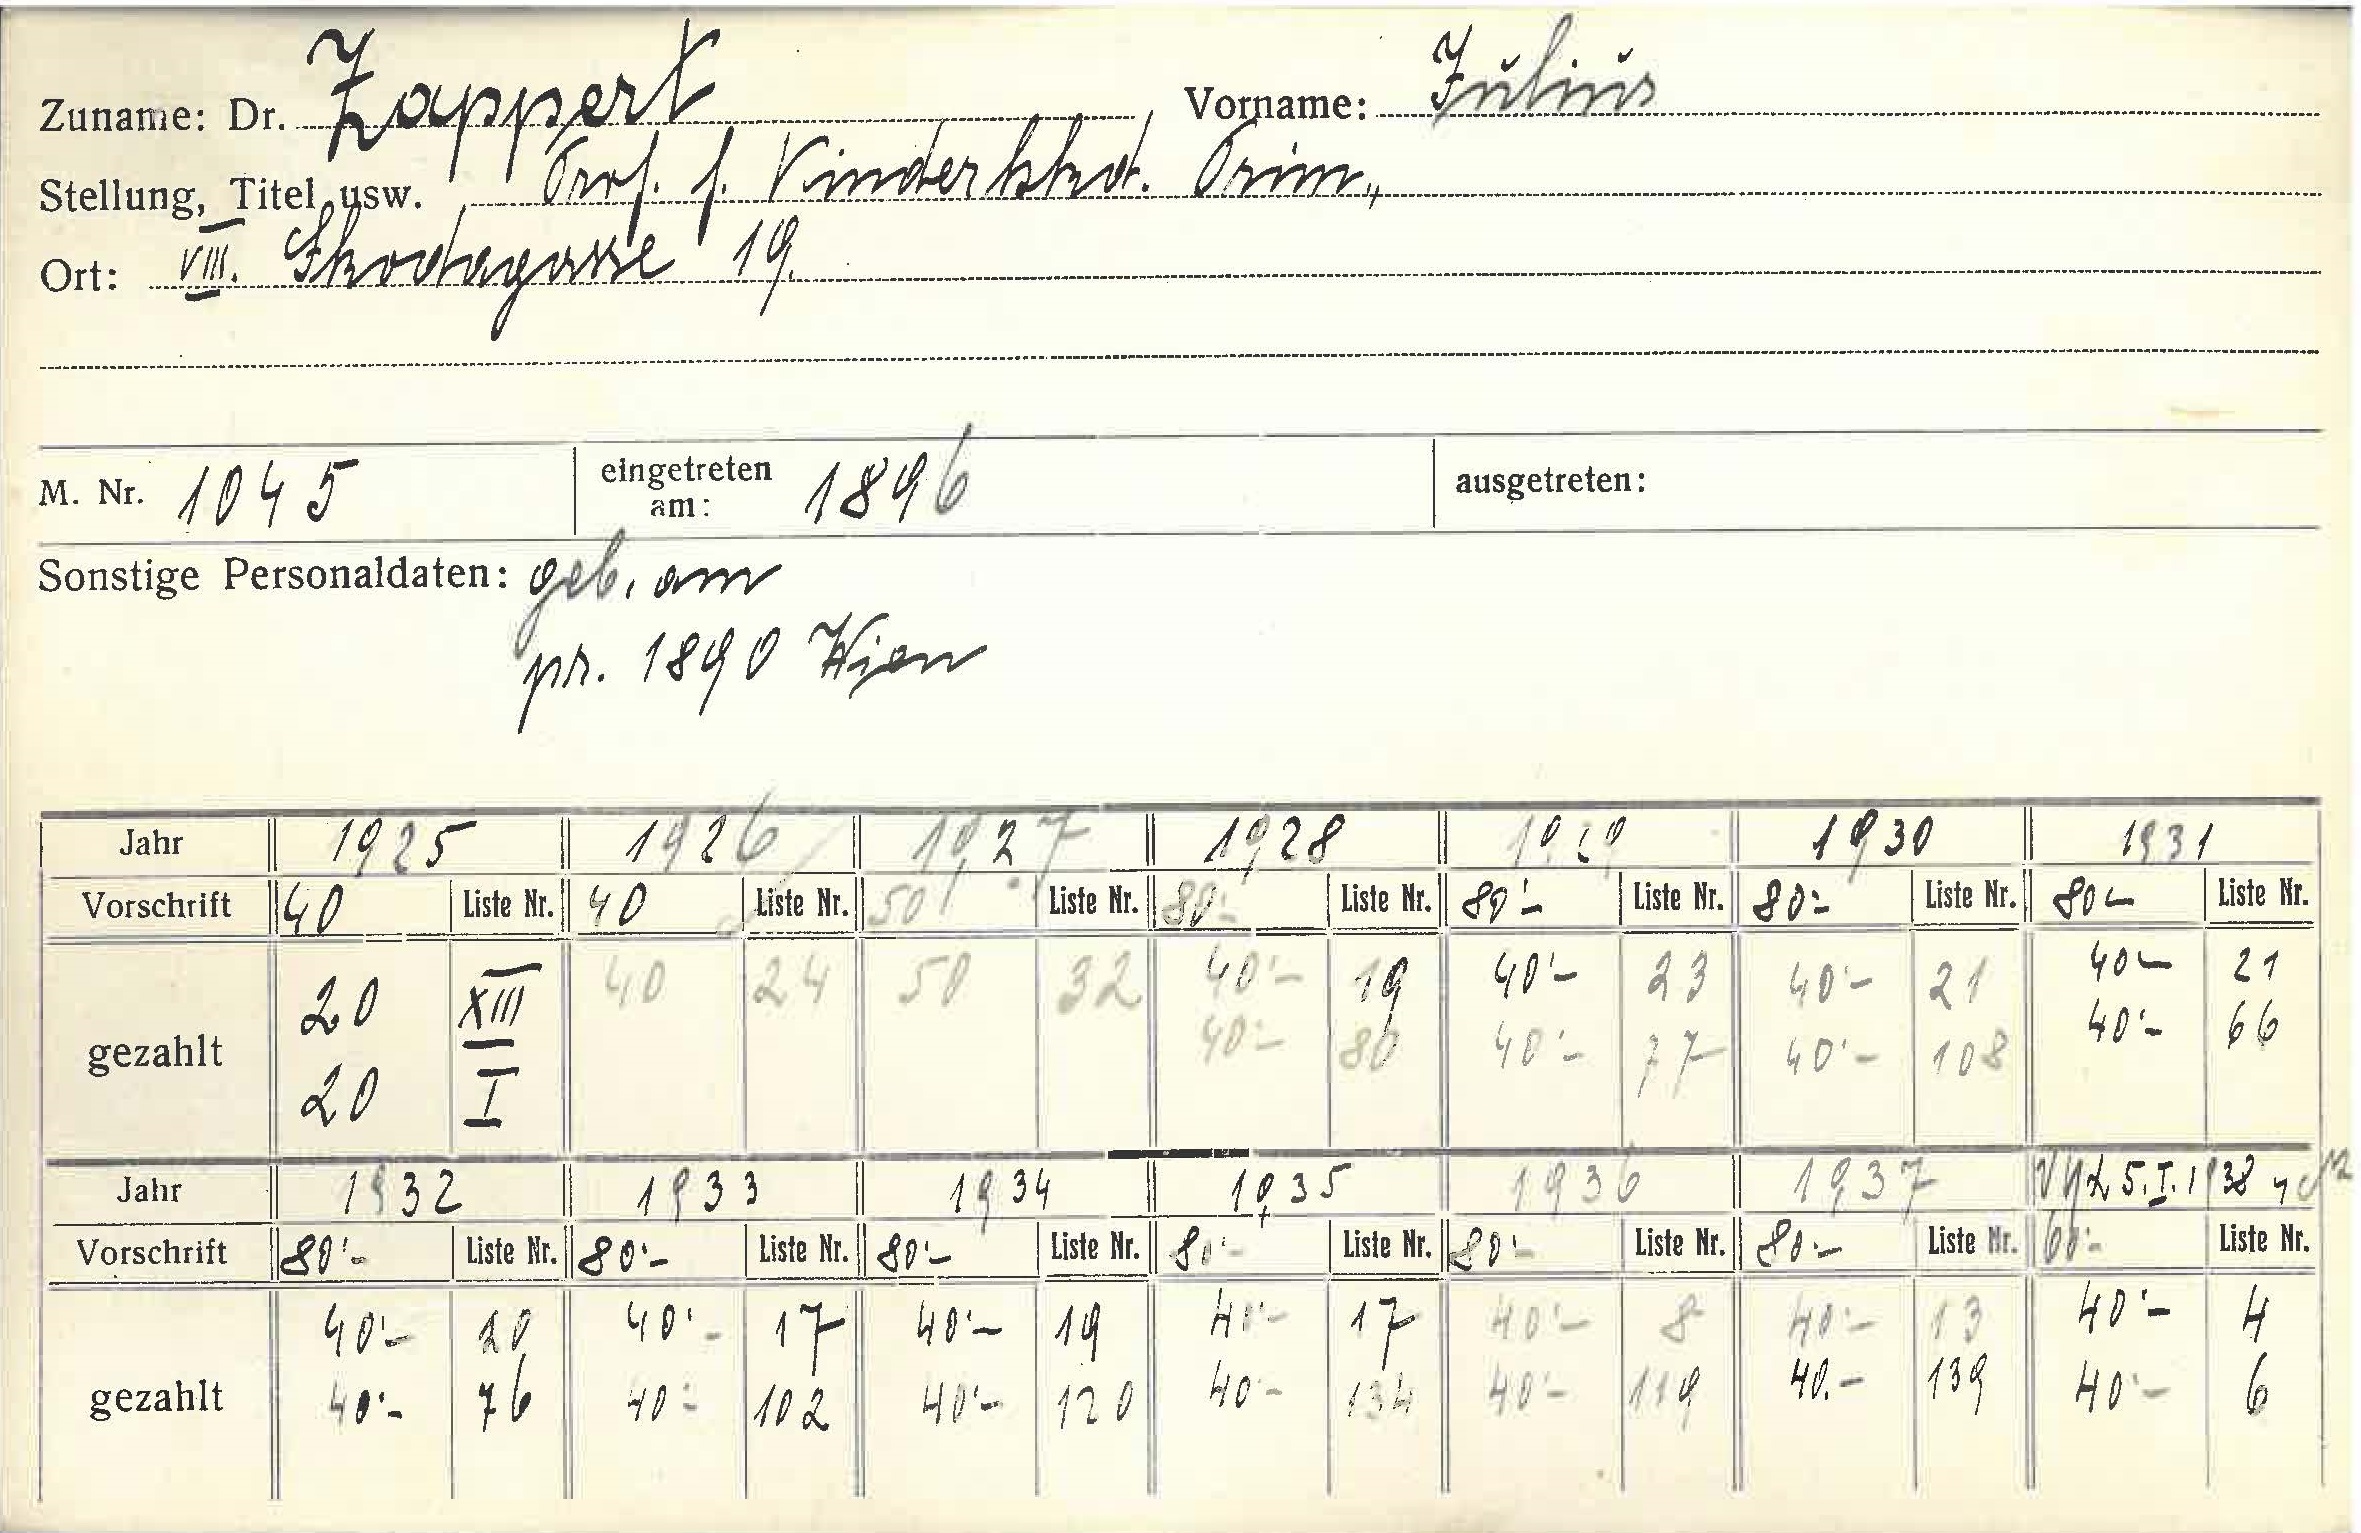 Zuname: Dr. Zappert Vorname: Julius
Stellung, Titel usw. Prof. f. Kinderhkd. Prim.,
Ort: VIII. Skodagasse 19.
M. Nr. 1045 eingetreten am: 1896 ausgetreten:
Sonstige Personaldaten: geb. am
pr. 1890 Wien
Jahr 1925 1926 1927 1928 1929 1930 1931
Vorschrift 40 Liste Nr. 40 Liste Nr. 50 Liste Nr. 80.- Liste Nr. 80.- Liste Nr. 80.- Liste Nr. 80.- Liste Nr.
gezahlt 20 XIII 40 24 50 32 40.- 19 40.- 23 40.- 21 40.- 21
20 I 40.- 80 40.- 77 40.- 108 40.- 66
Jahr 1932 1933 1934 1935 1936 1937 5.I.1938
Vorschrift 80.- Liste Nr. 80.- Liste Nr. 80.- Liste Nr. 80.- Liste Nr. 80.- Liste Nr. 80.- Liste Nr. Liste Nr.
gezahlt 40.- 20 40.- 17 40.- 19 40.- 17 40.- 8 40.- 13 40.- 4
40.- 76 40.- 102 40.- 120 40.- 134 40.- 119 40.- 139 40.- 6